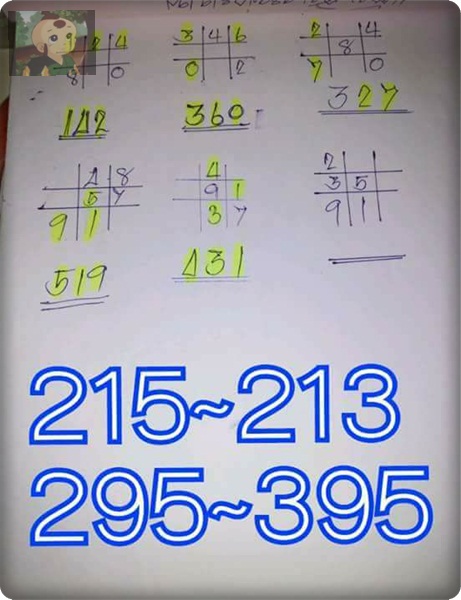 1 2 4 3 4 6 2 4
8
8 0 0 2 7 0
142 360 327
4 8 4 2
5 7 9 1 3 5
9 1 3 7 9 1
519 431
215~213
295~395